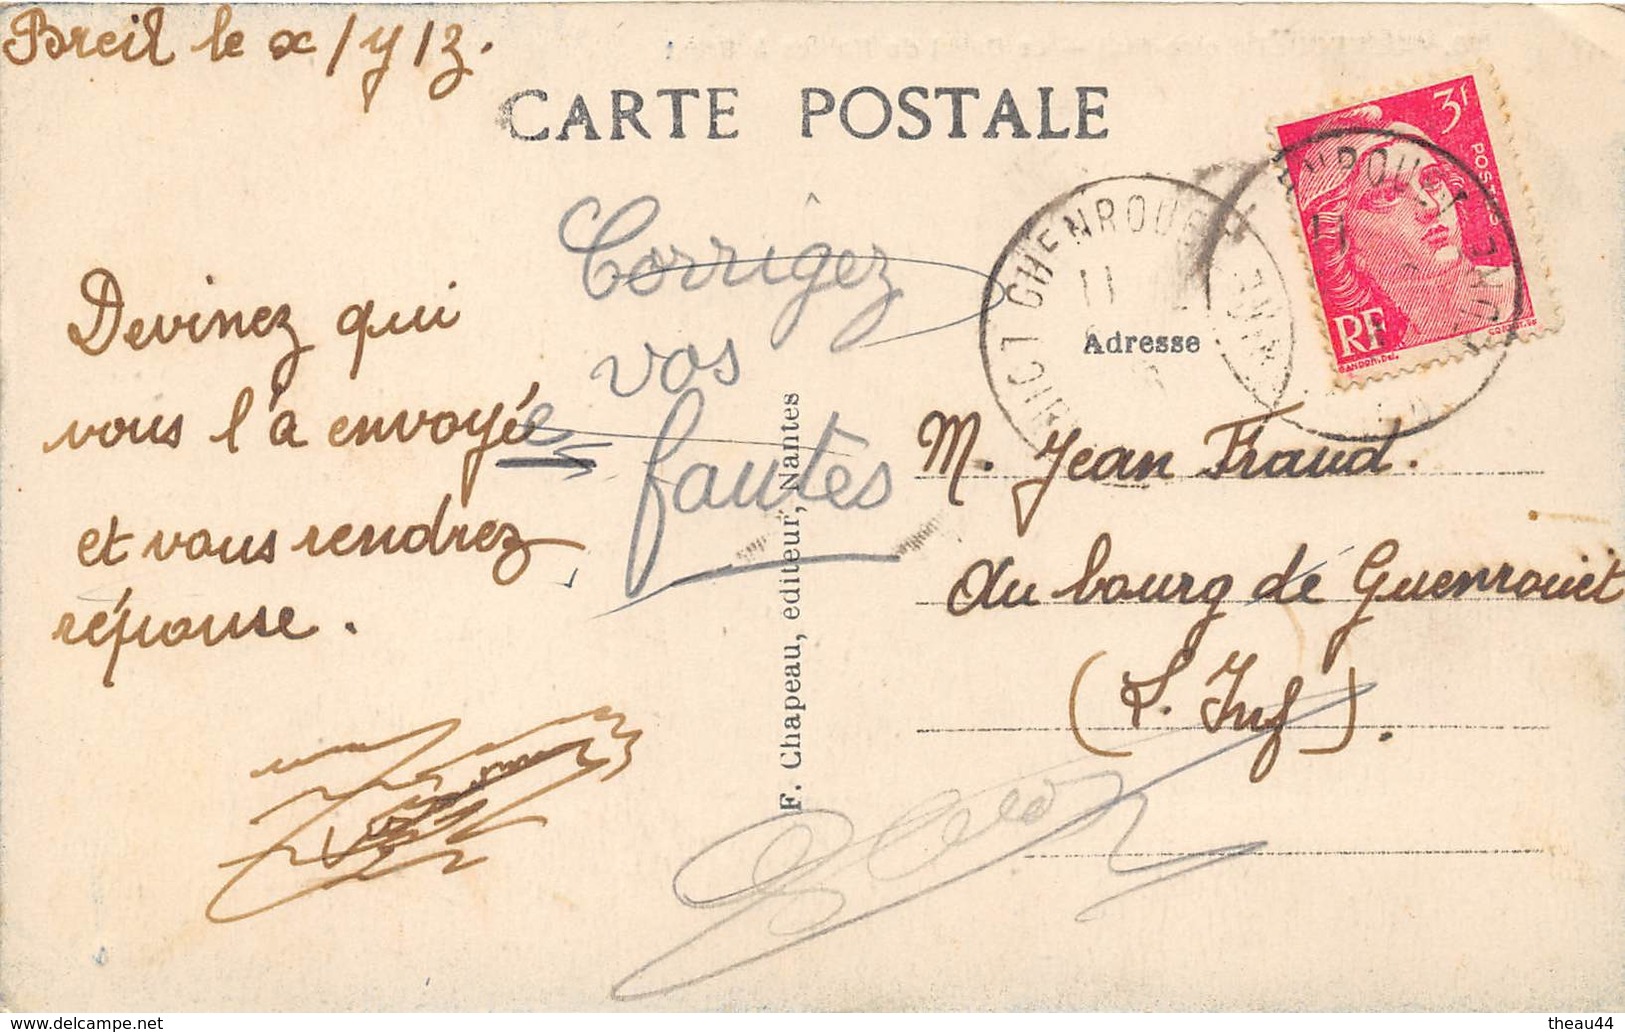 Breil le x/y/z.
CARTE POSTALE
3f
POSTES
RF
GANDON.Del.
GUENROUET
11
Adresse
Corrigez
vos
fautes
Devinez qui
vous l'a envoyée
et vous rendrez
réponse.
F. Chapeau, editeur, Nantes
M. Jean Fraud.
au bourg de Guenrouët
(L. Inf).
theau44